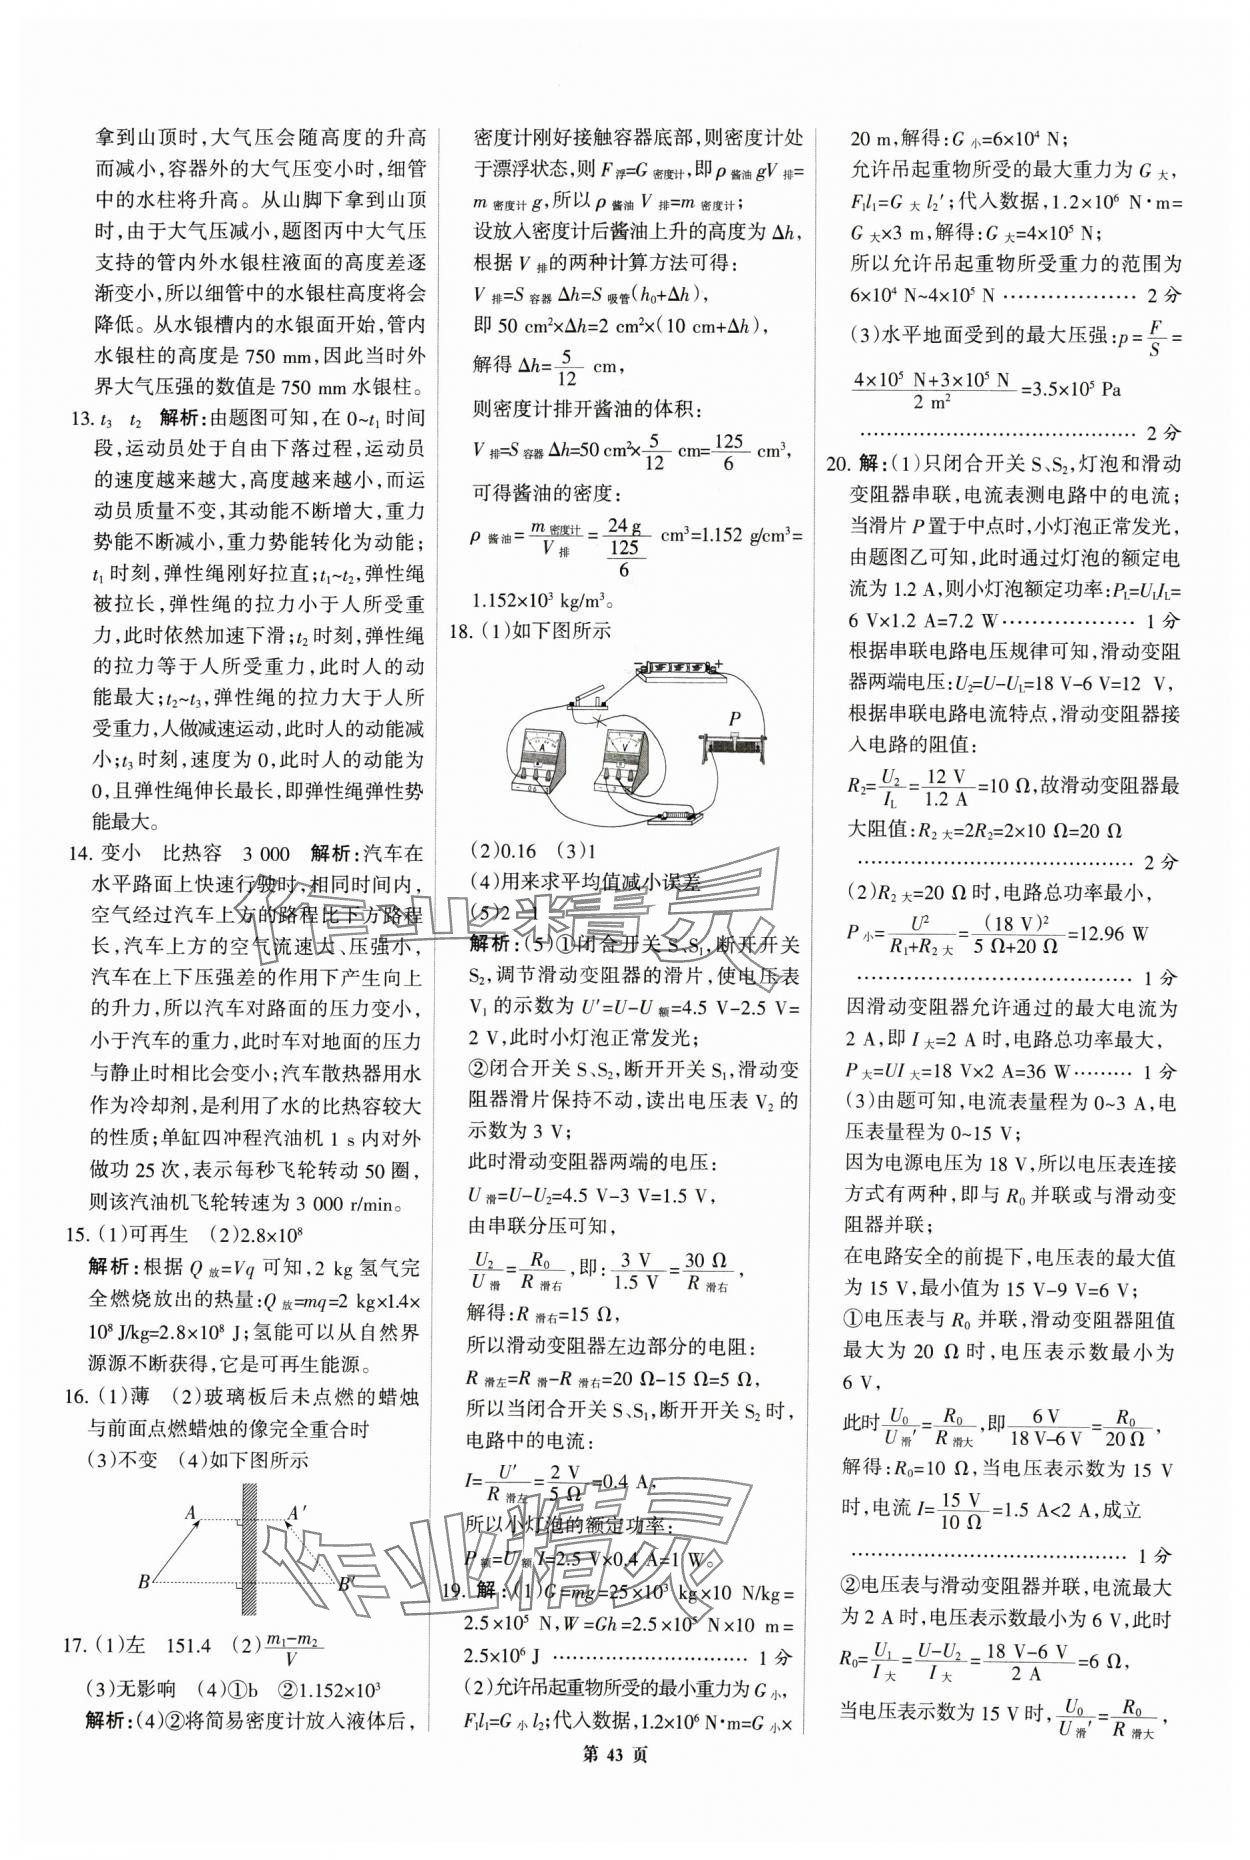 拿到山顶时,大气压会随高度的升高
而减小,容器外的大气压变小时,细管
中的水柱将升高。从山脚下拿到山顶
时,由于大气压减小,题图丙中大气压
支持的管内外水银柱液面的高度差逐
渐变小,所以细管中的水银柱高度将会
降低。从水银槽内的水银面开始,管内
水银柱的高度是 750 mm,因此当时外
界大气压强的数值是 750 mm 水银柱。
13. t₃ t₂ 解析:由题图可知,在 0~t₁ 时间
段,运动员处于自由下落过程,运动员
的速度越来越大,高度越来越小,而运
动员质量不变,其动能不断增大,重力
势能不断减小,重力势能转化为动能;
t₁ 时刻,弹性绳刚好拉直;t₁~t₂,弹性绳
被拉长,弹性绳的拉力小于人所受重
力,此时依然加速下滑;t₂ 时刻,弹性绳
的拉力等于人所受重力,此时人的动
能最大;t₂~t₃,弹性绳的拉力大于人所
受重力,人做减速运动,此时人的动能减
小;t₃ 时刻,速度为 0,此时人的动能为
0,且弹性绳伸长最长,即弹性绳弹性势
能最大。
14. 变小 比热容 3 000 解析:汽车在
水平路面上快速行驶时,相同时间内,
空气经过汽车上方的路程比下方路程
长,汽车上方的空气流速大、压强小,
汽车在上下压强差的作用下产生向上
的升力,所以汽车对路面的压力变小,
小于汽车的重力,此时车对地面的压力
与静止时相比会变小;汽车散热器用水
作为冷却剂,是利用了水的比热容较大
的性质;单缸四冲程汽油机 1 s 内对外
做功 25 次,表示每秒飞轮转动 50 圈,
则该汽油机飞轮转速为 3 000 r/min。
15. (1)可再生 (2)2.8×10⁸
解析:根据 Q放=Vq 可知,2 kg 氢气完
全燃烧放出的热量:Q放=mq=2 kg×1.4×
10⁸ J/kg=2.8×10⁸ J;氢能可以从自然界
源源不断获得,它是可再生能源。
16. (1)薄 (2)玻璃板后未点燃的蜡烛
与前面点燃蜡烛的像完全重合时
(3)不变 (4)如下图所示
A A′
B B′
17. (1)左 151.4 (2)(m₁−m₂)/V
(3)无影响 (4)①b ②1.152×10³
解析:(4)②将简易密度计放入液体后,
密度计刚好接触容器底部,则密度计处
于漂浮状态,则 F浮=G密度计,即 ρ酱油gV排=
m密度计g,所以 ρ酱油V排=m密度计;
设放入密度计后酱油上升的高度为 Δh,
根据 V排的两种计算方法可得:
V排=S容器Δh=S吸管(h₀+Δh),
即 50 cm²×Δh=2 cm²×(10 cm+Δh),
解得 Δh=5/12 cm,
则密度计排开酱油的体积:
V排=S容器Δh=50 cm²×5/12 cm=125/6 cm³,
可得酱油的密度:
ρ酱油=m密度计/V排=24 g/(125/6 cm³)=1.152 g/cm³=
1.152×10³ kg/m³。
18. (1)如下图所示
− +
A V P
(2)0.16 (3)1
(4)用来求平均值减小误差
(5)2 1
解析:(5)①闭合开关 S、S₁,断开开关
S₂,调节滑动变阻器的滑片,使电压表
V₁ 的示数为 U′=U−U额=4.5 V−2.5 V=
2 V,此时小灯泡正常发光;
②闭合开关 S、S₂,断开开关 S₁,滑动变
阻器滑片保持不动,读出电压表 V₂ 的
示数为 3 V;
此时滑动变阻器两端的电压:
U滑=U−U₂=4.5 V−3 V=1.5 V,
由串联分压可知,
U₂/U滑=R₀/R滑右,即:3 V/1.5 V=30 Ω/R滑右,
解得:R滑右=15 Ω,
所以滑动变阻器左边部分的电阻:
R滑左=R滑−R滑右=20 Ω−15 Ω=5 Ω,
所以当闭合开关 S、S₁,断开开关 S₂ 时,
电路中的电流:
I=U′/R滑左=2 V/5 Ω=0.4 A,
所以小灯泡的额定功率:
P额=U额I=2.5 V×0.4 A=1 W。
19. 解:(1)G=mg=25×10³ kg×10 N/kg=
2.5×10⁵ N,W=Gh=2.5×10⁵ N×10 m=
2.5×10⁶ J ………………………… 1 分
(2)允许吊起重物所受的最小重力为 G小,
F₁l₁=G小l₂;代入数据,1.2×10⁶ N·m=G小×
20 m,解得:G小=6×10⁴ N;
允许吊起重物所受的最大重力为 G大,
F₁l₁=G大l₂′;代入数据,1.2×10⁶ N·m=
G大×3 m,解得:G大=4×10⁵ N;
所以允许吊起重物所受重力的范围为
6×10⁴ N~4×10⁵ N ……………… 2 分
(3)水平地面受到的最大压强:p=F/S=
(4×10⁵ N+3×10⁵ N)/2 m²=3.5×10⁵ Pa
………………………………… 2 分
20. 解:(1)只闭合开关 S、S₂,灯泡和滑动
变阻器串联,电流表测电路中的电流;
当滑片 P 置于中点时,小灯泡正常发光,
由题图乙可知,此时通过灯泡的额定电
流为 1.2 A,则小灯泡额定功率:P_L=U_LI_L=
6 V×1.2 A=7.2 W……………… 1 分
根据串联电路电压规律可知,滑动变阻
器两端电压:U₂=U−U_L=18 V−6 V=12 V,
根据串联电路电流特点,滑动变阻器接
入电路的阻值:
R₂=U₂/I_L=12 V/1.2 A=10 Ω,故滑动变阻器最
大阻值:R₂大=2R₂=2×10 Ω=20 Ω
………………………………… 2 分
(2)R₂大=20 Ω 时,电路总功率最小,
P小=U²/(R₁+R₂大)=(18 V)²/(5 Ω+20 Ω)=12.96 W
………………………………… 1 分
因滑动变阻器允许通过的最大电流为
2 A,即 I大=2 A 时,电路总功率最大,
P大=UI大=18 V×2 A=36 W……… 1 分
(3)由题可知,电流表量程为 0~3 A,电
压表量程为 0~15 V;
因为电源电压为 18 V,所以电压表连接
方式有两种,即与 R₀ 并联或与滑动变
阻器并联;
在电路安全的前提下,电压表的最大值
为 15 V,最小值为 15 V−9 V=6 V;
①电压表与 R₀ 并联,滑动变阻器阻值
最大为 20 Ω 时,电压表示数最小为
6 V,
此时U₀/U滑′=R₀/R滑大,即6 V/(18 V−6 V)=R₀/20 Ω,
解得:R₀=10 Ω,当电压表示数为 15 V
时,电流 I=15 V/10 Ω=1.5 A<2 A,成立
………………………………… 1 分
②电压表与滑动变阻器并联,电流最大
为 2 A 时,电压表示数最小为 6 V,此时
R₀=U₁/I大=(U−U₂)/I大=(18 V−6 V)/2 A=6 Ω,
当电压表示数为 15 V 时,U₀/U滑′=R₀/R滑大,
第 43 页
作业精灵
作业精灵